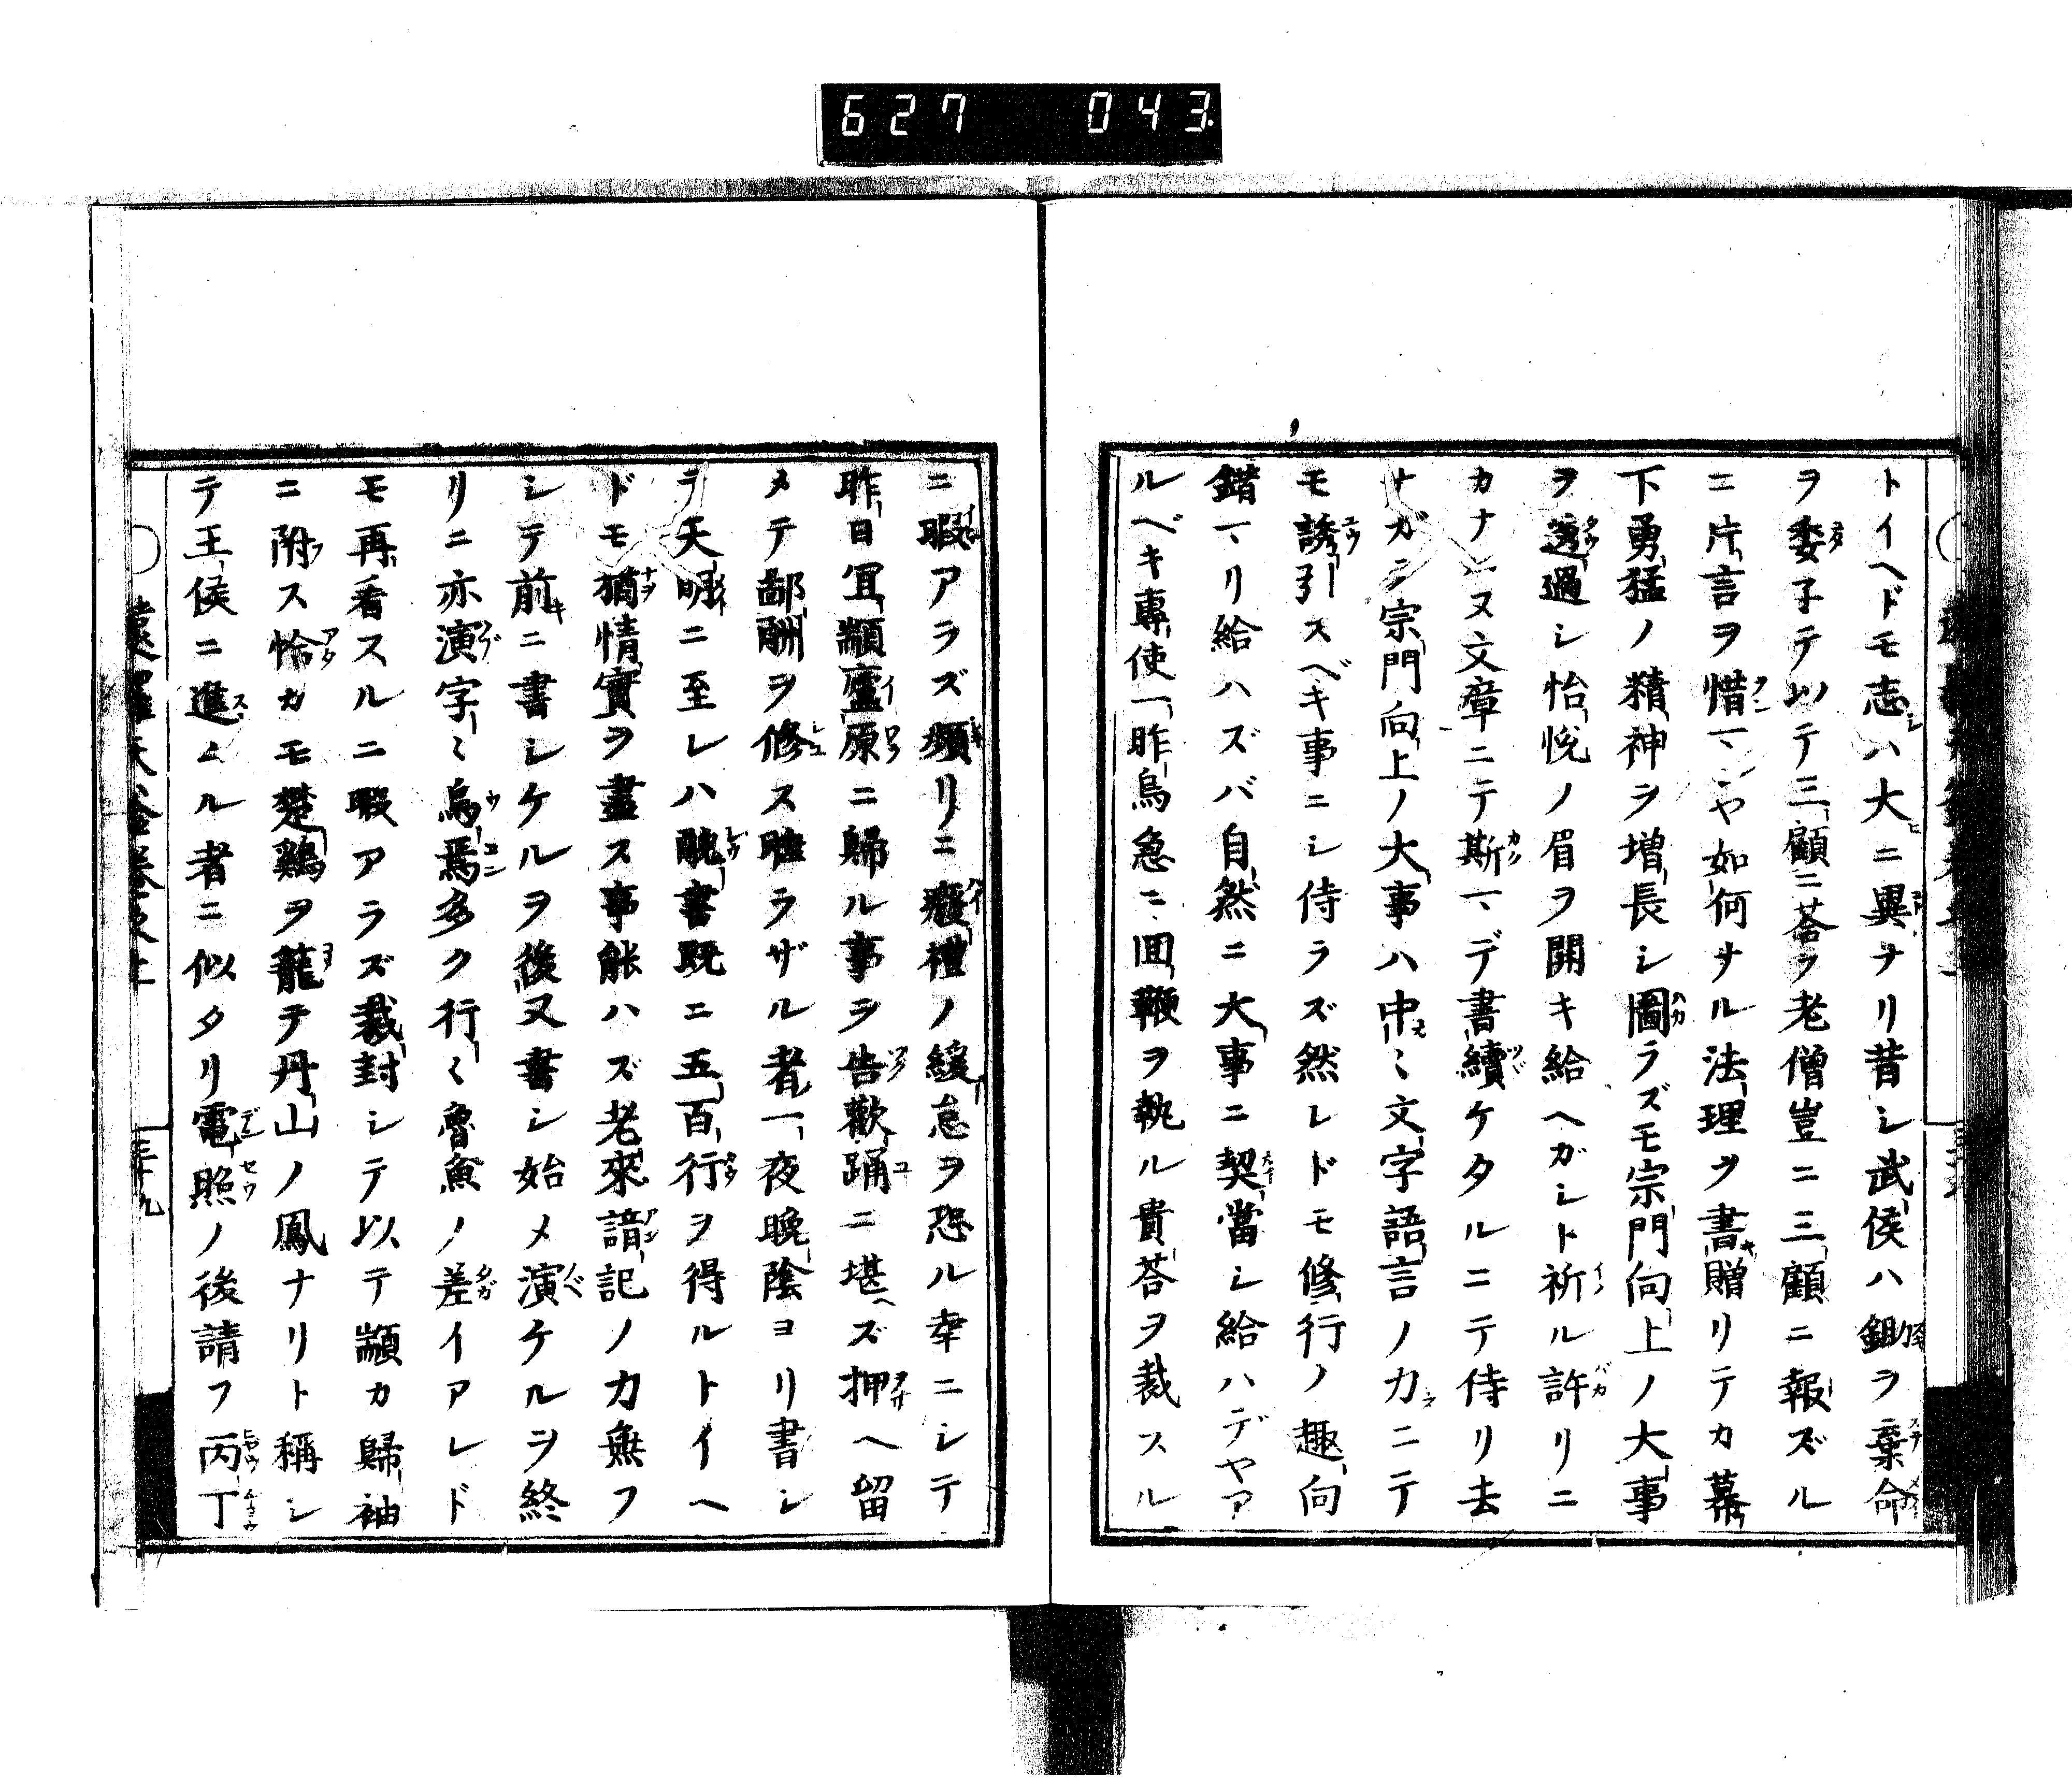 627 043
トイヘドモ志ハ大ニ異ナリ昔シ武侯ハ鉏ヲ棄命
ヲ委子テ以テ三顧ニ荅ラ老僧豈ニ三顧ニ報ズル
ニ片言ヲ惜ヽンヤ如何ナル法理ヲ書贈リテカ幕
下勇猛ノ精神ヲ増長シ圖ラズモ宗門向上ノ大事
ヲ透過シ怡悅ノ眉ヲ開キ給ヘガシト祈ル許リニ
カナハヌ文章ニテ斯ヽデ書續ケタルニテ侍リ去
ナガラ宗門向上ノ大事ハ中〻文字語言ノ力ニテ
モ誘引スベキ事ニシ侍ラズ然レドモ修行ノ趣向
錯ヽリ給ハズバ自然ニ大事ニ契當シ給ハデヤア
ルベキ專使一昨烏急ニ回鞭ヲ執ル貴荅ヲ裁スル
ニ暇アラズ頻リニ癈禮ノ緩怠ヲ恐ル幸ニシテ
昨日冝顓廬原ニ歸ル事ヲ告歡踊ニ堪ヘズ押ヘ留
メテ鄙酬ヲ修ス睡ラザル者一夜晩陰ヨリ書シ
テ天明ニ至レハ醜書既ニ五百行ヲ得ルトイヘ
ドモ猶情實ヲ盡ス事能ハズ老來諳記ノ力無フ
シテ前ニ書シケルヲ後又書シ始メ演ケルヲ終
リニ亦演字〻烏焉多ク行〻魯魚ノ差イアレド
モ再看スルニ暇アラズ裁封シテ以テ顓カ歸袖
ニ附ス恰カモ楚鷄ヲ籠テ丹山ノ鳳ナリト稱シ
テ王侯ニ進ムル者ニ似タリ電照ノ後請フ丙丁
三十九